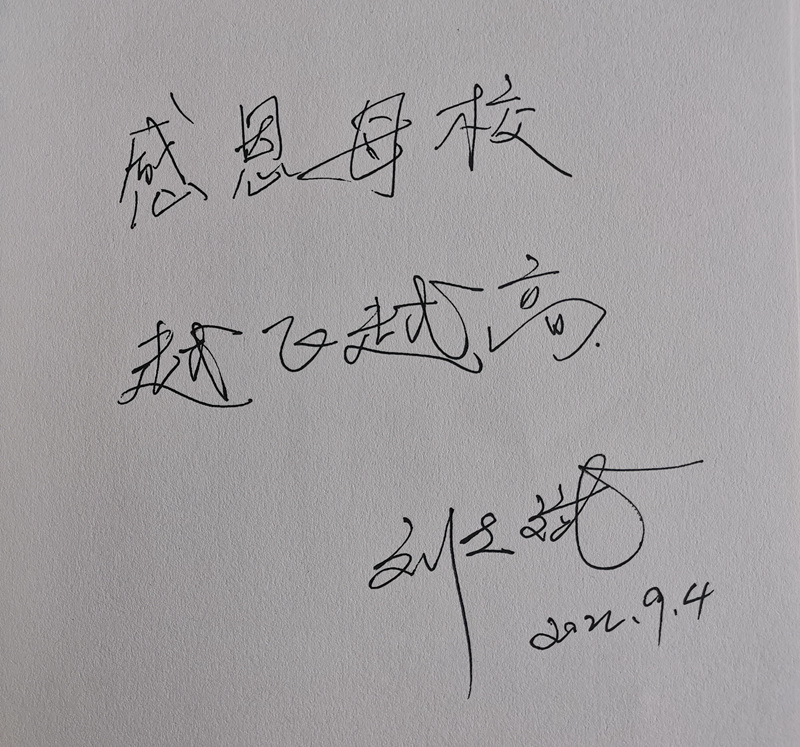 感恩母校
越飞越高.
刘之斌
2022.9.4